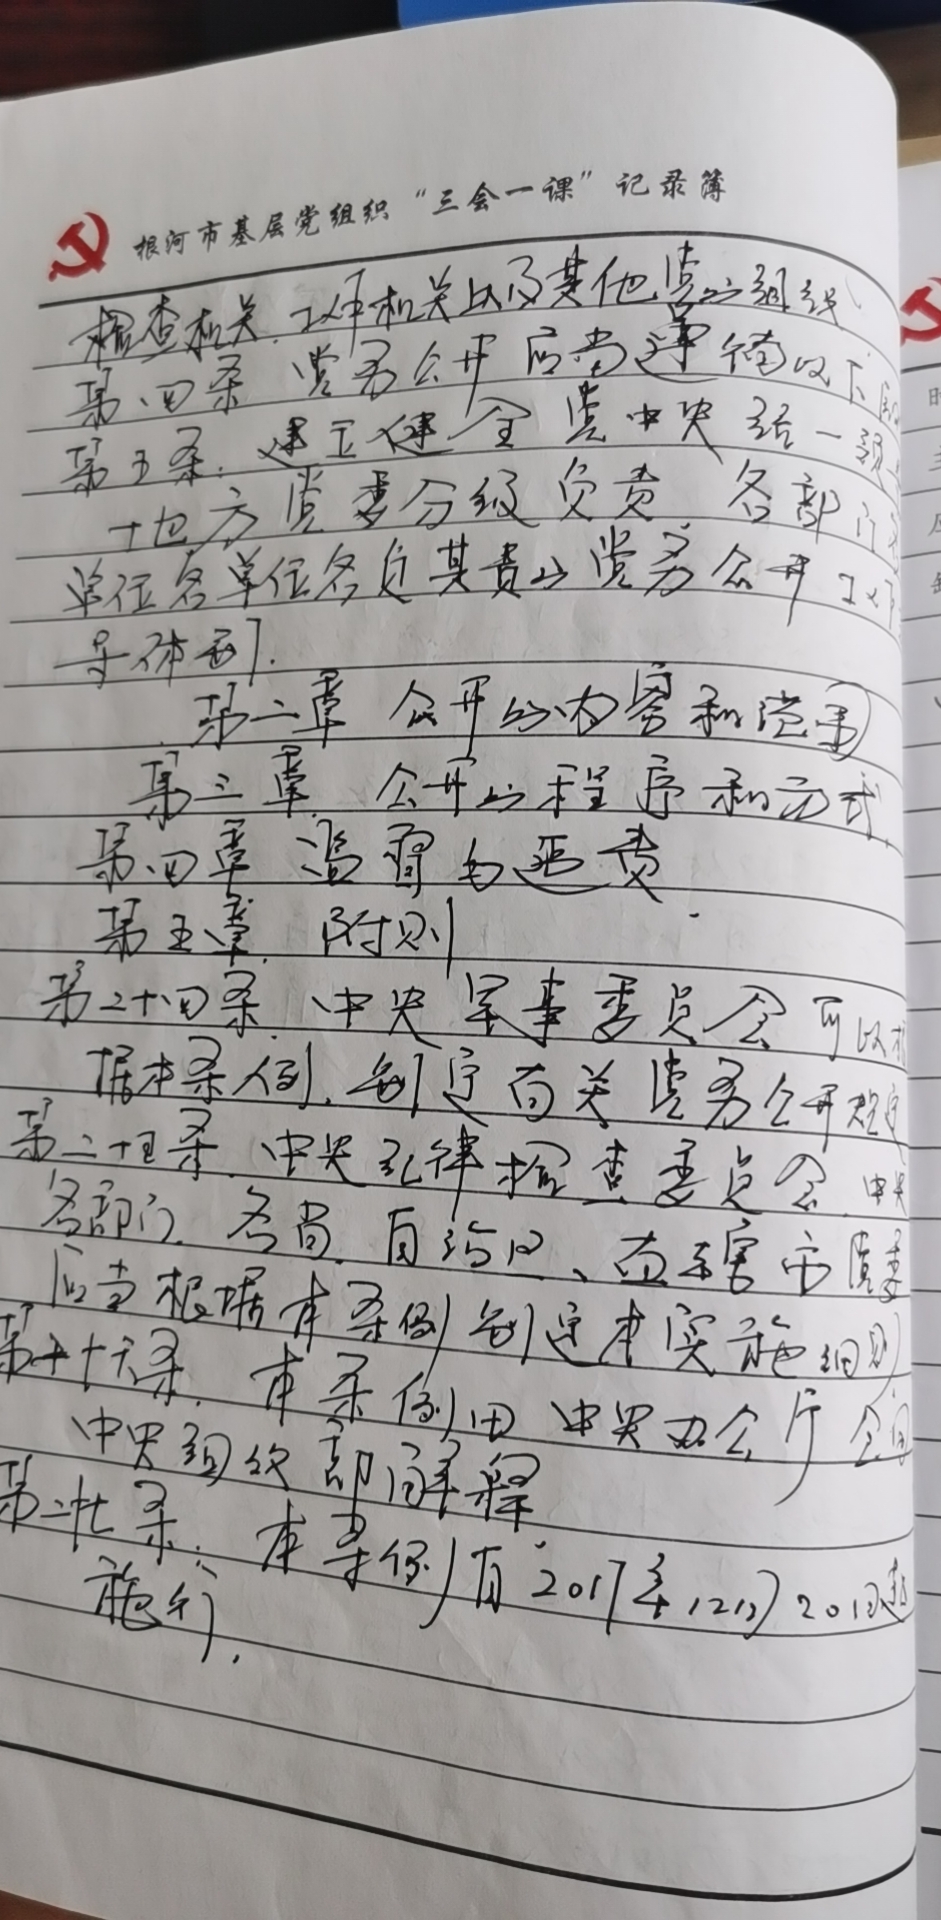 根河市基层党组织“三会一课”记录簿
检查机关、工作机关以及其他党的组织
第四条 党务公开应当遵循以下原
第五条. 建立健全党中央统一领
地方党委分级负责 各部门
单位各单位各负其责的党务公开工作
导体制.
第二章 公开的内容和范围
第三章. 公开的程序和方式
第四章 监督与追责
第五章. 附则
第二十四条. 中央军事委员会可以根
据本条例, 制定有关党务公开规定
第二十五条. 中央纪律检查委员会. 中央
各部门. 各省. 自治区、直辖市党委
应当根据本条例制定本实施细则
第二十六条. 本条例由中央办公厅会同
中央组织部解释
第二十七条. 本条例自2017年12月20日起
施行.
时